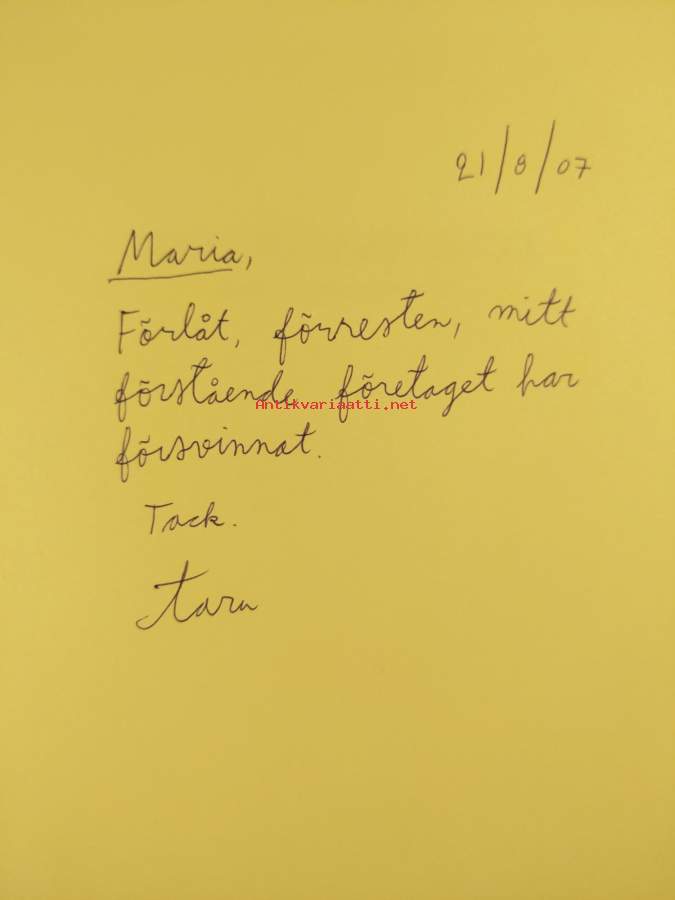 21/8/07
Maria,
Förlåt, förresten, mitt
förstående företaget har
Antikvariaatti.net
försvinnat.
Tack.
Taru